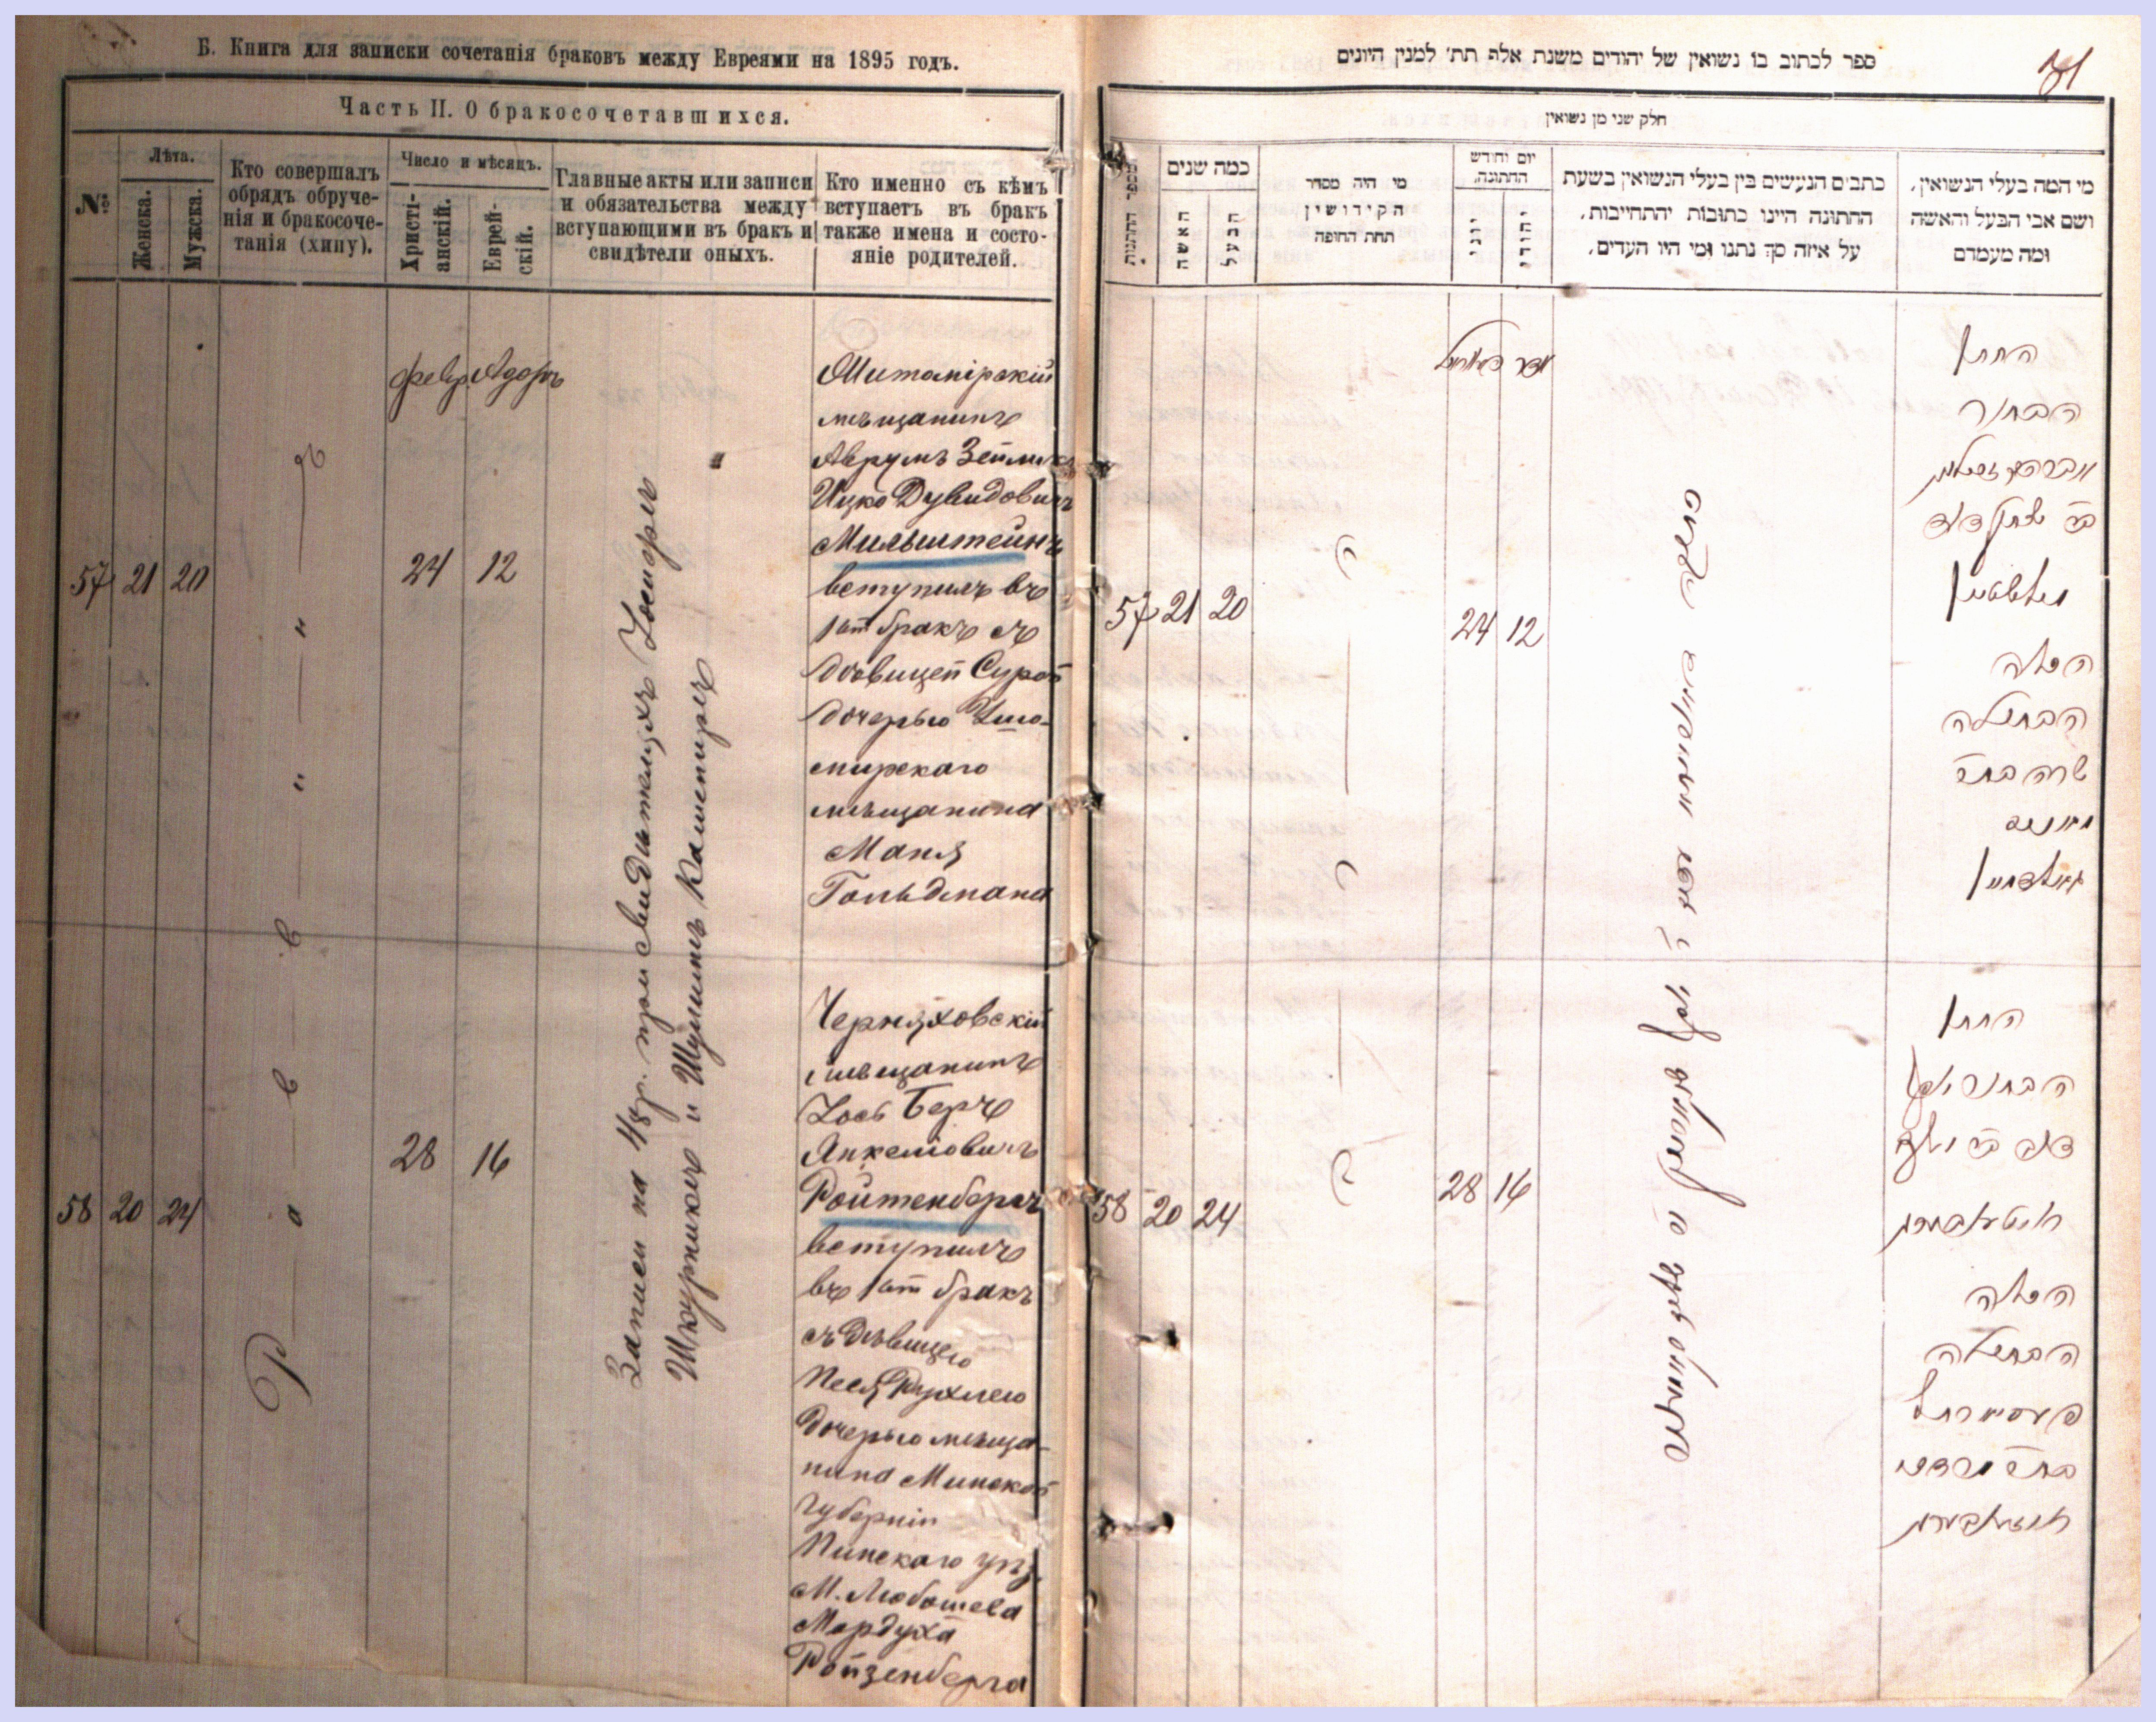 Б. Книга для записки сочетанія браковъ между Евреями на 1895 годъ.
Часть II. О бракосочетавшихся.
№
Лѣта.
Женска.
Мужска.
Кто совершалъ
обрядъ обруче-
нія и бракосоче-
танія (хипу).
Число и мѣсяцъ.
Христі-
анскій.
Еврей-
скій.
Главные акты или записи
и обязательства между
вступающими въ бракъ и
свидѣтели оныхъ.
Кто именно съ кѣмъ
вступаетъ въ бракъ
также имена и состо-
яніе родителей.
февр. Адаръ
57 21 20
24 12
Записи на 48 р. при свидѣтеляхъ
и Шулимъ
Житомірскій
мѣщанинъ
Аврумъ Зейликъ
Ицко Дувидовичъ
Мильштейнъ
вступилъ въ
1ый бракъ съ
дѣвицей Сурой
дочерью Ушо-
мирскаго
мѣщанина
Маня
Гольдмана
58 20 24
28 16
Р а в в и н ъ
Черняховскій
мѣщанинъ
Іось Беръ
Янкелювичъ
Ройтенбергъ
вступилъ
въ 1ый бракъ
съ дѣвицею
Песя Рухлею
дочерью мѣща-
нина Минской
губерніи
Пинскаго уѣз.
М. Любашева
Мордуха
Ройзенберга
ספר לכתוב בו נשואין של יהודים משנת אלף תת׳ למנין היונים
31
חלק שני מן נשואין
מספר החתונות
כמה שנים
האשה
הבעל
מי היה מסדר
הקידושין
תחת החופה
יום וחודש
החתונה.
יוני
יהודי
כתבים הנעשים בין בעלי הנשואין בשעת
החתונה היינו כתובות יהתחייבות,
על איזה סך נתנו ומי היו העדים.
מי המה בעלי הנשואין,
ושם אבי הבעל והאשה
ומה מעמדם
57 21 20
24 12
החתן
הבחור
אברהם זעליג
ב״ר יצחק דוד
מילשטיין
הכלה
הבתולה
שרה בת ר׳
גאלדמאן
58 20 24
28 16
החתן
הבחור יוסף
דוב ב״ר יעקב
רויטענבערג
הכלה
הבתולה
פעסיא רחל
בת ר׳ מרדכי
רויזענבערג